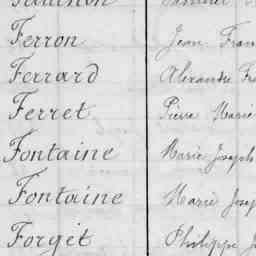 Ferron Jean Fran
Ferrard Alexandre Fr
Ferret Pierre Marie
Fontaine Marie Joseph
Fontaine Marie Josep
Forget Philippe J